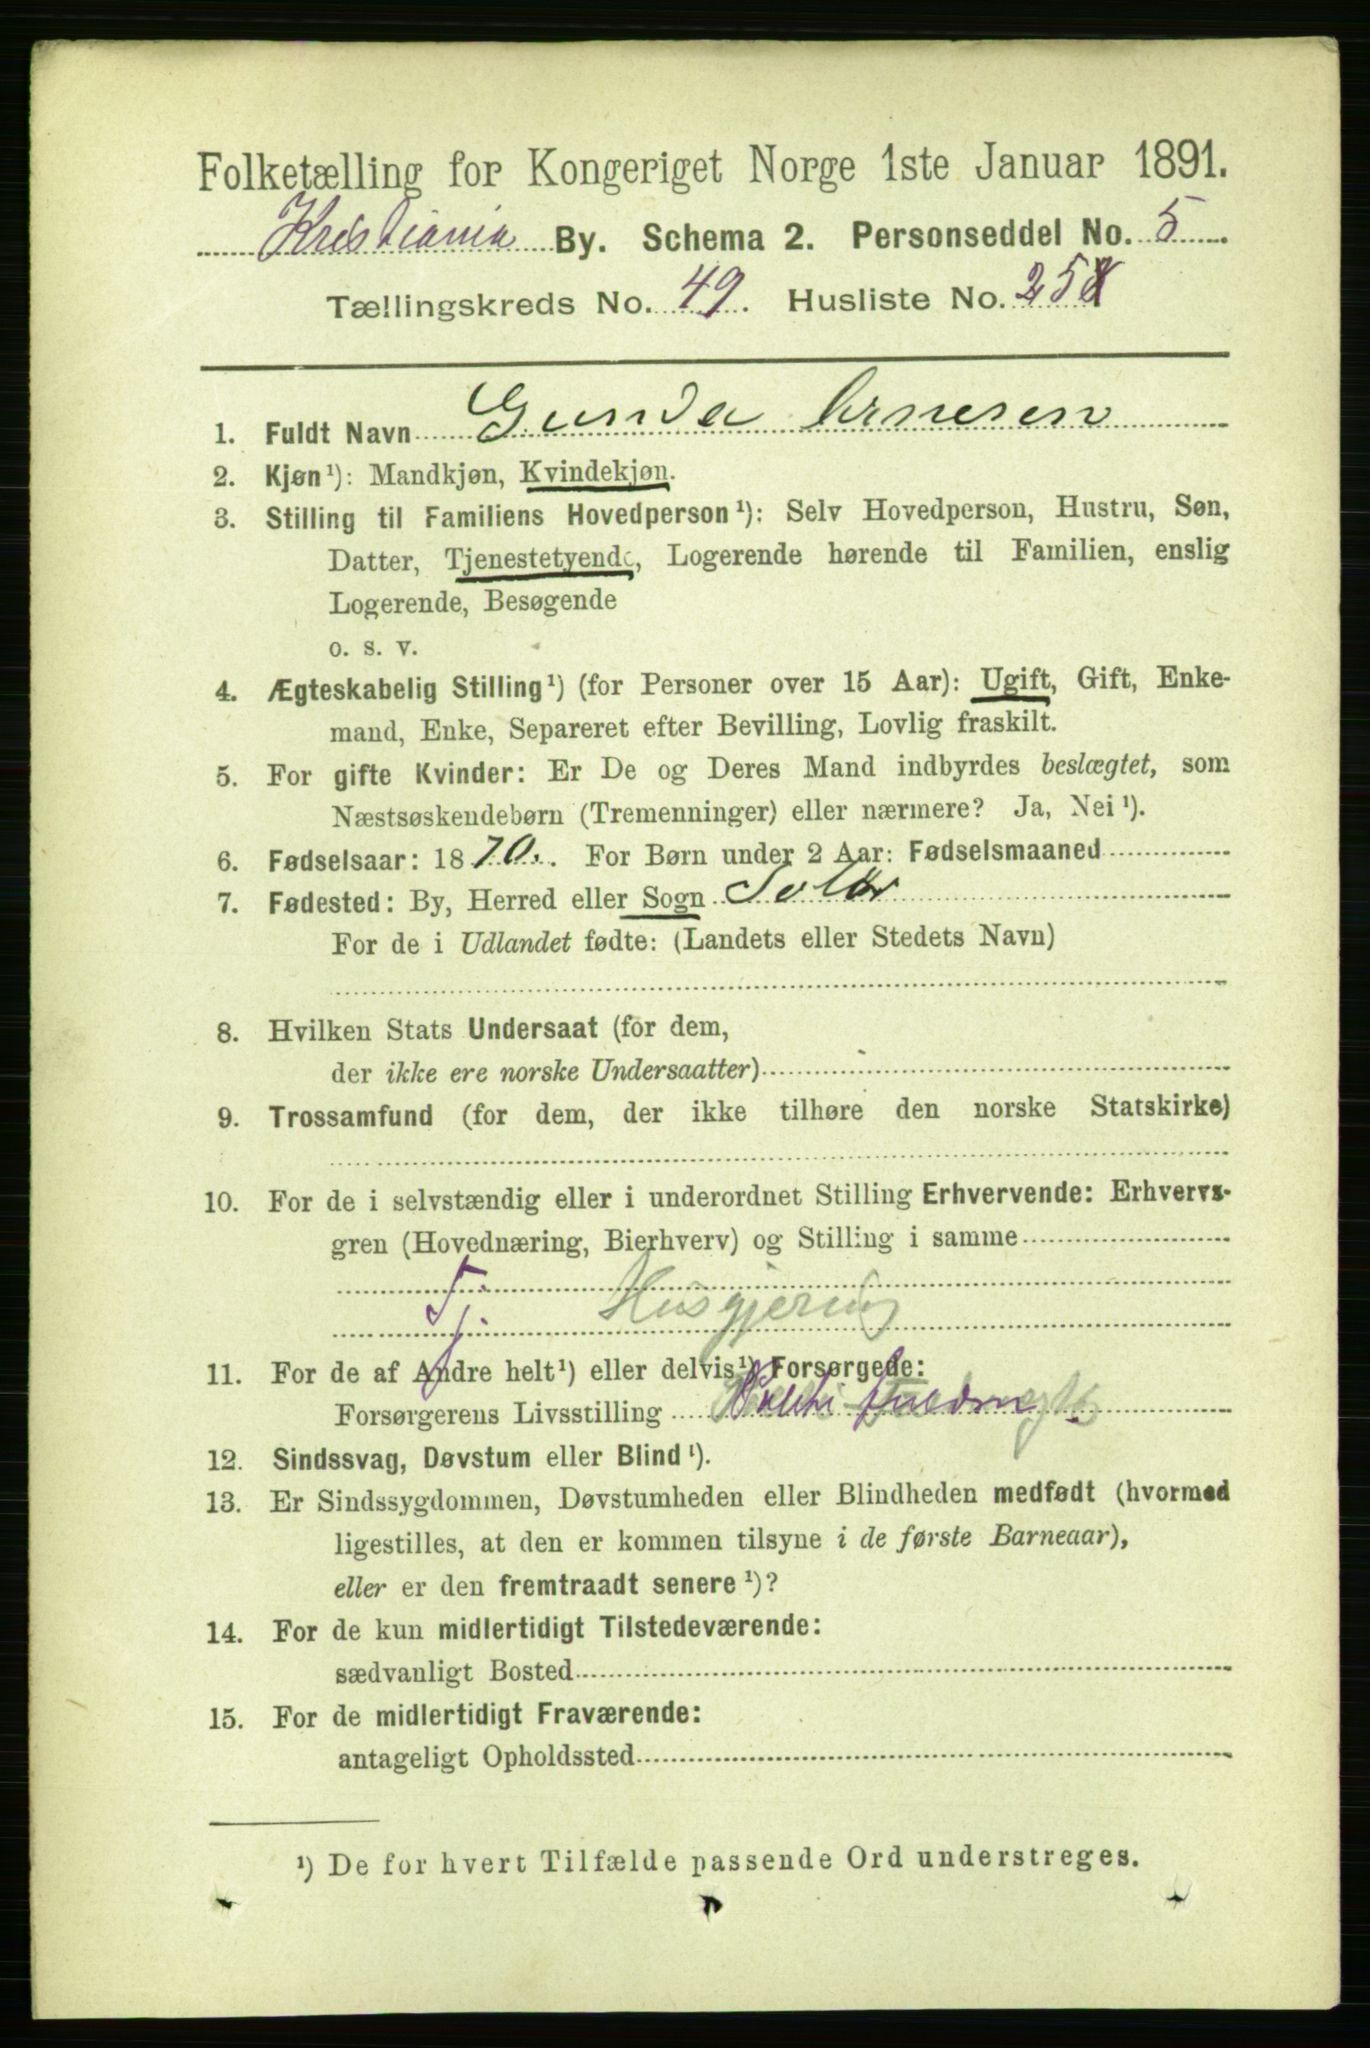 Folketælling for Kongeriget Norge 1ste Januar 1891.
Kristiania By. Schema 2. Personseddel No. 5
Tællingskreds No. 49. Husliste No. 25
1. Fuldt Navn Gunda Arnesen
2. Kjøn¹): Mandkjøn, Kvindekjøn.
3. Stilling til Familiens Hovedperson¹): Selv Hovedperson, Hustru, Søn,
Datter, Tjenestetyende, Logerende hørende til Familien, enslig
Logerende, Besøgende
o. s. v.
4. Ægteskabelig Stilling¹) (for Personer over 15 Aar): Ugift, Gift, Enke-
mand, Enke, Separeret efter Bevilling, Lovlig fraskilt.
5. For gifte Kvinder: Er De og Deres Mand indbyrdes beslægtet, som
Næstsøskendebørn (Tremenninger) eller nærmere? Ja, Nei¹).
6. Fødselsaar: 1870. For Børn under 2 Aar: Fødselsmaaned
7. Fødested: By, Herred eller Sogn Solør
For de i Udlandet fødte: (Landets eller Stedets Navn)
8. Hvilken Stats Undersaat (for dem,
der ikke ere norske Undersaatter)
9. Trossamfund (for dem, der ikke tilhøre den norske Statskirke)
10. For de i selvstændig eller i underordnet Stilling Erhvervende: Erhvervs-
gren (Hovednæring, Bierhverv) og Stilling i samme
Tj. Husgjerning
11. For de af Andre helt¹) eller delvis¹) Forsørgede:
Forsørgerens Livsstilling
12. Sindssvag, Døvstum eller Blind¹).
13. Er Sindssygdommen, Døvstumheden eller Blindheden medfødt (hvormed
ligestilles, at den er kommen tilsyne i de første Barneaar),
eller er den fremtraadt senere¹)?
14. For de kun midlertidigt Tilstedeværende:
sædvanligt Bosted
15. For de midlertidigt Fraværende:
antageligt Opholdssted
¹) De for hvert Tilfælde passende Ord understreges.